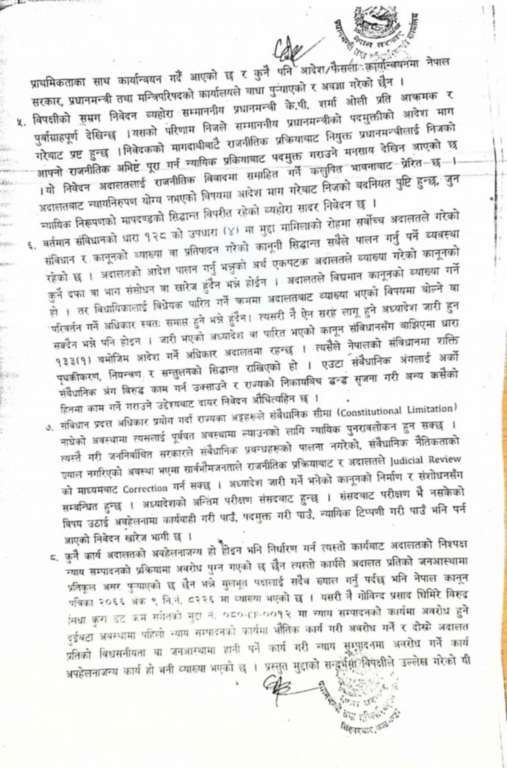 प्राथमिकताका साथ कार्यान्वयन गर्दै आएको छ र कुनै पनि आदेश/फैसला कार्यान्वयनमा नेपाल
सरकार, प्रधानमन्त्री तथा मन्त्रिपरिषदको कार्यालयले बाधा पुर्‍याएको र अवज्ञा गरेको छैन ।
५. विपक्षीको समग्र निवेदन व्यहोरा सम्माननीय प्रधानमन्त्री के.पी. शर्मा ओली प्रति आक्रमक र
पुर्वाग्रहपूर्ण देखिन्छ ।यसको परिणाम निजले सम्माननीय प्रधानमन्त्रीको पदमुक्तीको आदेश भाग
गरेबाट प्रष्ट हुन्छ ।निवेदकको मागदाबीबाटै राजनीतिक प्रक्रियाबाट नियुक्त प्रधानमन्त्रीलाई निजको
आफ्नो राजनीतिक अभिष्ट पूरा गर्न न्यायिक प्रकियाबाट पदमुक्त गराउने मनसाय देखिन आएको छ
।यो निवेदन अदालतलाई राजनीतिक विवादमा समाहित गर्ने कलुषित भावनाबाट प्रेरित छ ।
अदालतबाट न्यायनिरुपण योग्य नभएको विषयमा आदेश माग गरेबाट निजको बदनियत पुष्टि हुन्छ, जुन
न्यायिक निरूपणको मापदण्डको सिद्धान्त विपरीत रहेको व्यहोरा सादर निवेदन छ ।
६. वर्तमान संविधानको धारा १२८ को उपधारा (४) मा मुद्दा मामिलाको रोहमा सर्वोच्च अदालतले गरेको
संविधान र कानूनको व्याख्या वा प्रतिपादन गरेको कानूनी सिद्धान्त सबैले पालन गर्नु पर्ने व्यवस्था
रहेको छ । अदालतको आदेश पालन गर्नु भन्नुको अर्थ एकपटक अदालतले व्याख्या गरेको कानूनको
कुनै दफा वा भाग संसोधन वा खारेज हुदैन भन्ने होईन । अदालतले विद्यमान कानूनको व्याख्या गर्ने
हो । तर विधायिकालाई विधेयक पारित गर्ने क्रममा अदालतबाट व्याख्या भएको विषयमा बोल्ने वा
परिवर्तन गर्ने अधिकार स्वतः समाप्त हुने भन्ने हुँदैन। त्यसरी नै ऐन सरह लागू हुने अध्यादेश जारी हुन
सक्दैन भन्ने पनि होइन । जारी भएको अध्यादेश वा पारित भएको कानून संविधानसँग बाझिएमा धारा
१३३(१) बमोजिम आदेश गर्ने अधिकार अदालतमा रहन्छ । त्यसैले नेपालको संविधानमा शक्ति
पृथकीकरण, नियन्त्रण र सन्तुलनको सिद्धान्त राखिएको हो । एउटा संवैधानिक अंगलाई अर्को
संवैधानिक अंग विरुद्ध काम गर्न उक्साउने र राज्यको निकायबिच द्वन्द्ध सृजना गरी अन्य कसैको
हितमा काम गर्ने गराउने उद्देश्यबाट दायर निवेदन औचित्यहिन छ ।
७. संविधान प्रदत्त अधिकार प्रयोग गर्दा राज्यका अङ्गहरूले संबैधानिक सीमा (Constitutional Limitation)
नाघेको अवस्थामा त्यसलाई पूर्ववत अवस्थामा ल्याउनको लागि न्यायिक पुनरावलोकन हुन सक्छ ।
त्यस्तै गरी जननिर्वाचित सरकारले संबैधानिक प्रबन्धहरूको पालना नगरेको, संबैधानिक नैतिकताको
ख्याल नगरिएको अवस्था भएमा सार्वभौमजनताले राजनीतिक प्रक्रियाबाट र अदालतले Judicial Review
को माध्यमबाट Correction गर्न सक्छ । अध्यादेश जारी गर्ने भनेको कानूनको निर्माण र संशोधनसँग
सम्बन्धित हुन्छ । अध्यादेशको अन्तिम परीक्षण संसदबाट हुन्छ । संसदबाट परीक्षण भै नसकेको
विषय उठाई अवहेलनामा कार्यवाही गरी पाउँ, पदमुक्त गरी पाउँ, न्यायिक टिप्पणी गरी पाउँ भनि पर्न
आएको निवेदन खारेज भागी छ ।
८. कुनै कार्य अदालतको अवहेलनाजन्य हो होइन भनि निर्धारण गर्न त्यस्तो कार्यबाट अदालतको निश्पक्ष
न्याय सम्पादनको प्रक्रियामा अवरोध पुग्न गएको छ छैन त्यस्तो कार्यले अदालत प्रतिको जनआस्थामा
प्रतिकूल असर पुर्‍याएको छ छैन भन्ने मूलभूत पक्षलाई सदैव ख्याल गर्नु पर्दछ भनि नेपाल कानून
पत्रिका २०६६ अंक ९ नि.नं. ८२२६ मा व्याख्या भएको छ । यसरी नै गोविन्द प्रसाद घिमिरे विरुद्ध
मा न्याय सम्पादनको कार्यमा अवरोध हुने
दुईवटा अवस्थामा पहिलो न्याय सम्पादनको कार्यमा भौतिक कार्य गरी अवरोध गर्ने र दोस्रो अदालत
प्रतिको विश्वसनीयता वा जनआस्थामा हानी पर्ने कार्य गरी न्याय सम्पादनमा अवरोध गर्ने कार्य
अपहेलनाजन्य कार्य हो भनी व्याख्या भएको छ । प्रस्तुत मुद्दाको सन्दर्भमा विपक्षीले उल्लेख गरेको यी